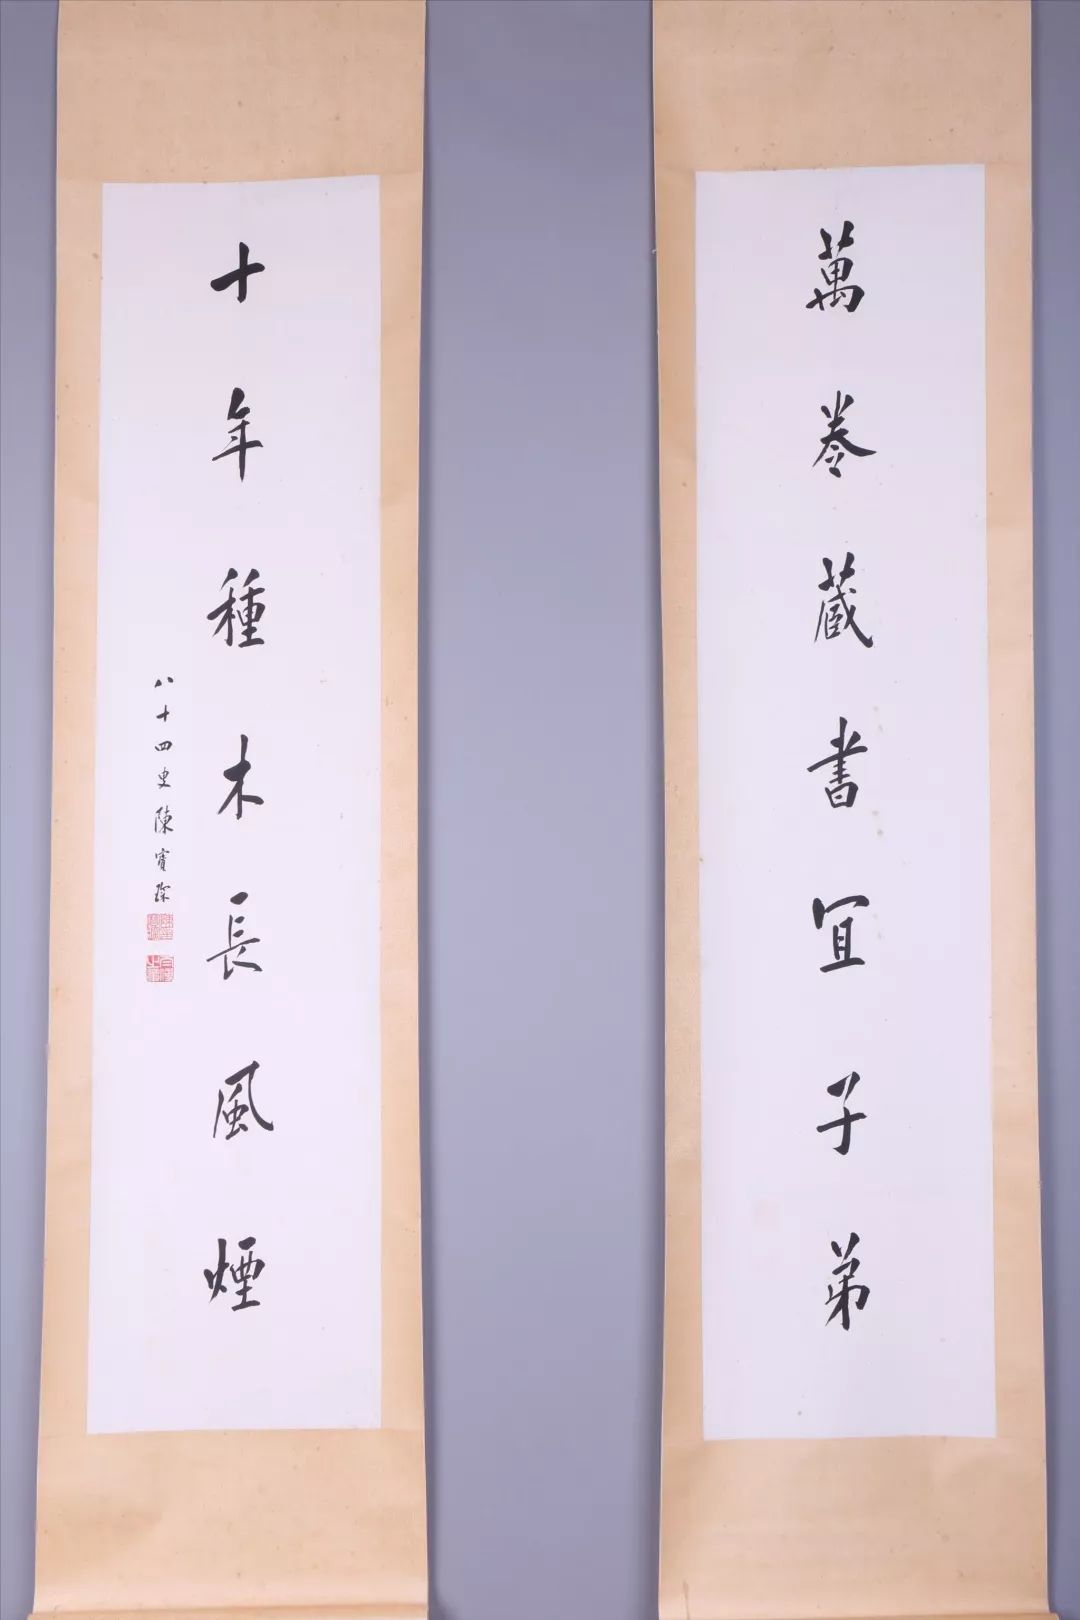 萬卷藏書宜子弟
十年種木長風煙
八十四叟陳寶琛